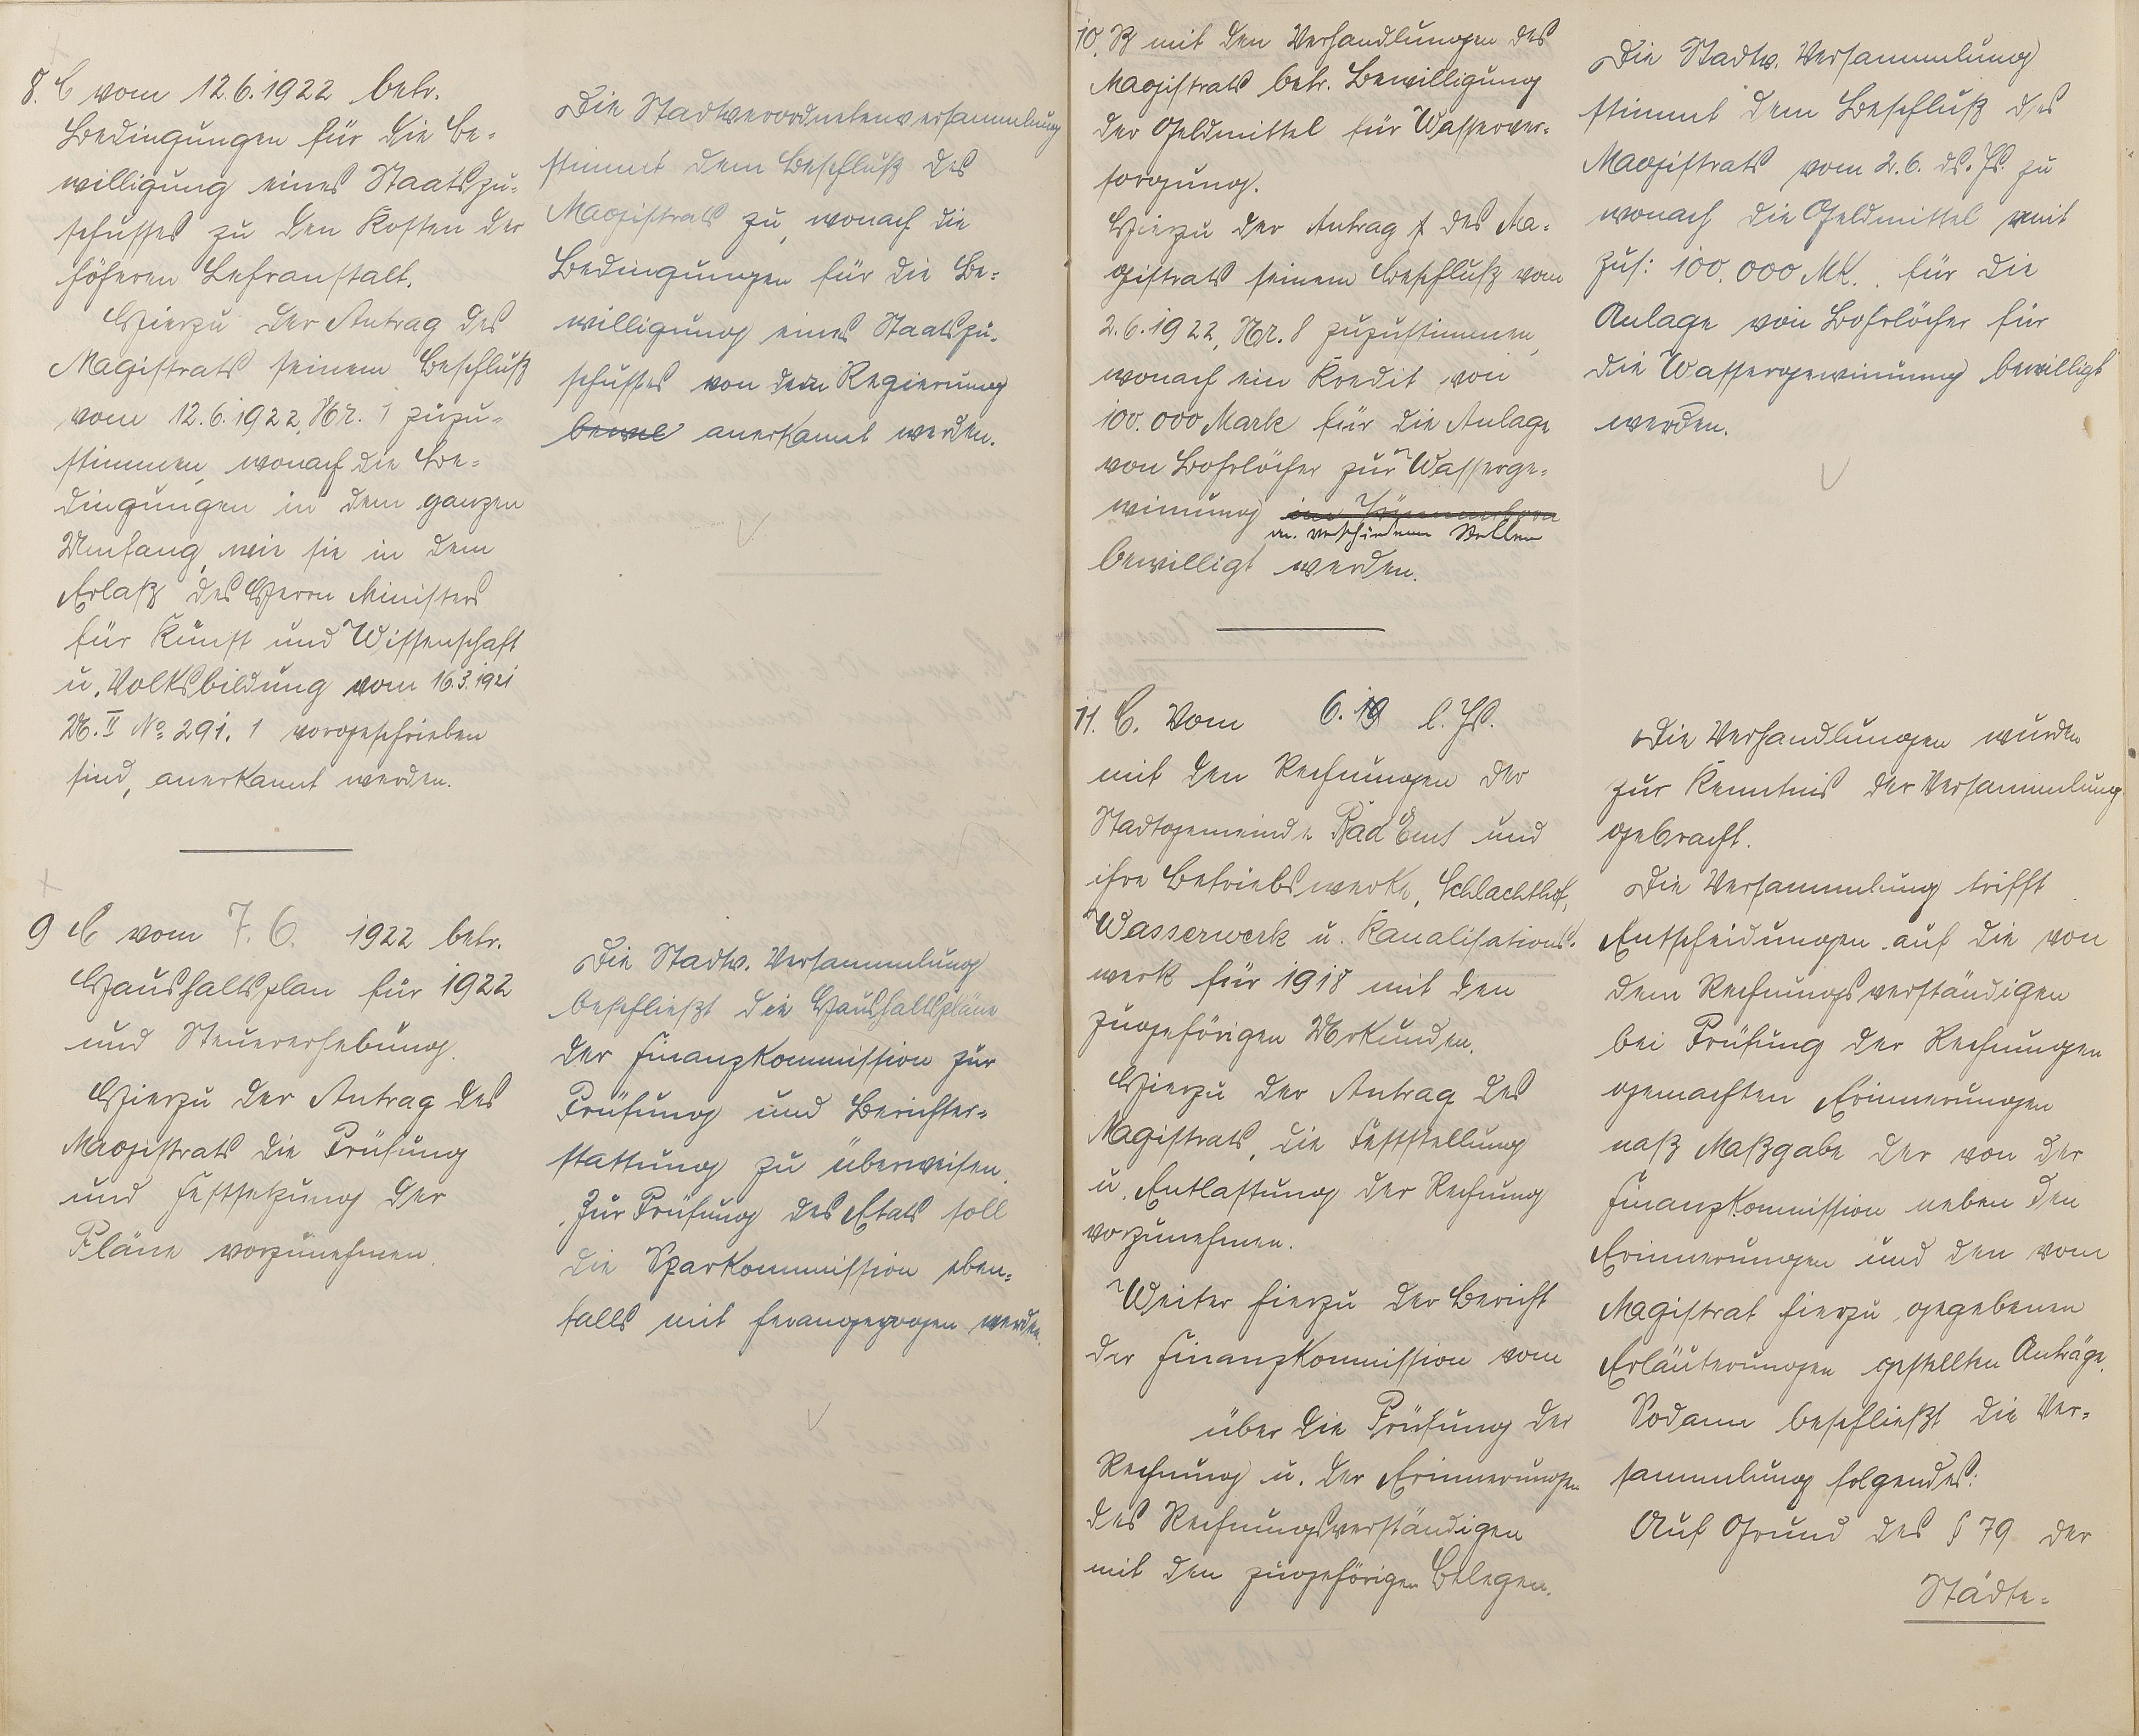 8. C vom 12.6.1922 betr.
Bedingungen für die Be-
willigung eines Staatszu-
schusses zu den Kosten der
höheren Lehranstalt.
Hierzu der Antrag des
Magistrats seinem Beschluß
vom 12.6.1922, Nr. 1 zuzu-
stimmen, wonach die Be-
dingungen in dem ganzen
Umfang, wie sie in dem
Erlaß des Herrn Ministers
für Kunst und Wissenschaft
u. Volksbildung vom 16.3.1921
U. II No 291. 1 vorgeschrieben
sind, anerkannt werden.
Die Stadtverordnetenversammlung
stimmt dem Beschluß des
Magistrats zu, wonach die
Bedingungen für die Be-
willigung eines Staatszu-
schusses von der Regierung
anerkannt werden.
9 C vom 7. 6. 1922 betr.
Haushaltsplan für 1922
und Steuererhebung.
Hierzu der Antrag des
Magistrats die Prüfung
und Festsetzung der
Pläne vorzunehmen.
Die Stadtv. Versammlung
beschließt die Haushaltspläne
der Finanzkommission zur
Prüfung und Berichter-
stattung zu überweisen.
Zur Prüfung des Etats soll
die Sparkommission eben-
falls mit herangezogen werden.
10. B mit den Verhandlungen des
Magistrats betr. Bewilligung
der Geldmittel für Wasserver-
sorgung.
Hierzu der Antrag des Ma-
gistrats seinem Beschluß vom
2.6.1922, Nr. 8 zuzustimmen,
wonach ein Kredit von
100.000 Mark für die Anlage
von Bohrlöcher zur Wasserge-
winnung
an verschiedenen Stellen
bewilligt werden.
Die Stadtv. Versammlung
stimmt dem Beschluß des
Magistrats vom 2.6. ds. Js. zu
wonach die Geldmittel mit
zus: 100.000 Mk. für die
Anlage von Bohrlöcher für
die Wassergewinnung bewilligt
werden.
11. C. Vom 6. l. Js.
mit den Rechnungen der
Stadtgemeinde Bad Ems und
ihre Betriebswerke, Schlachthof,
Wasserwerk u. Kanalisations-
werk für 1918 mit den
zugehörigen Urkunden.
Hierzu der Antrag des
Magistrats, die Feststellung
u. Entlastung der Rechnung
vorzunehmen.
Weiter hierzu der Bericht
der Finanzkommission vom
über die Prüfung der
Rechnung u. der Erinnerungen
des Rechnungsverständigen
mit den zugehörigen Belegen.
Die Verhandlungen wurden
zur Kenntnis der Versammlung
gebracht.
Die Versammlung trifft
Entscheidungen auf die von
dem Rechnungsverständigen
bei Prüfung der Rechnungen
gemachten Erinnerungen
nach Maßgabe der von der
Finanzkommission neben den
Erinnerungen und den vom
Magistrat hierzu gegebenen
Erläuterungen gestellten Anträge.
Sodann beschließt die Ver-
sammlung folgendes:
Auf Grund des § 79 der
Städte-